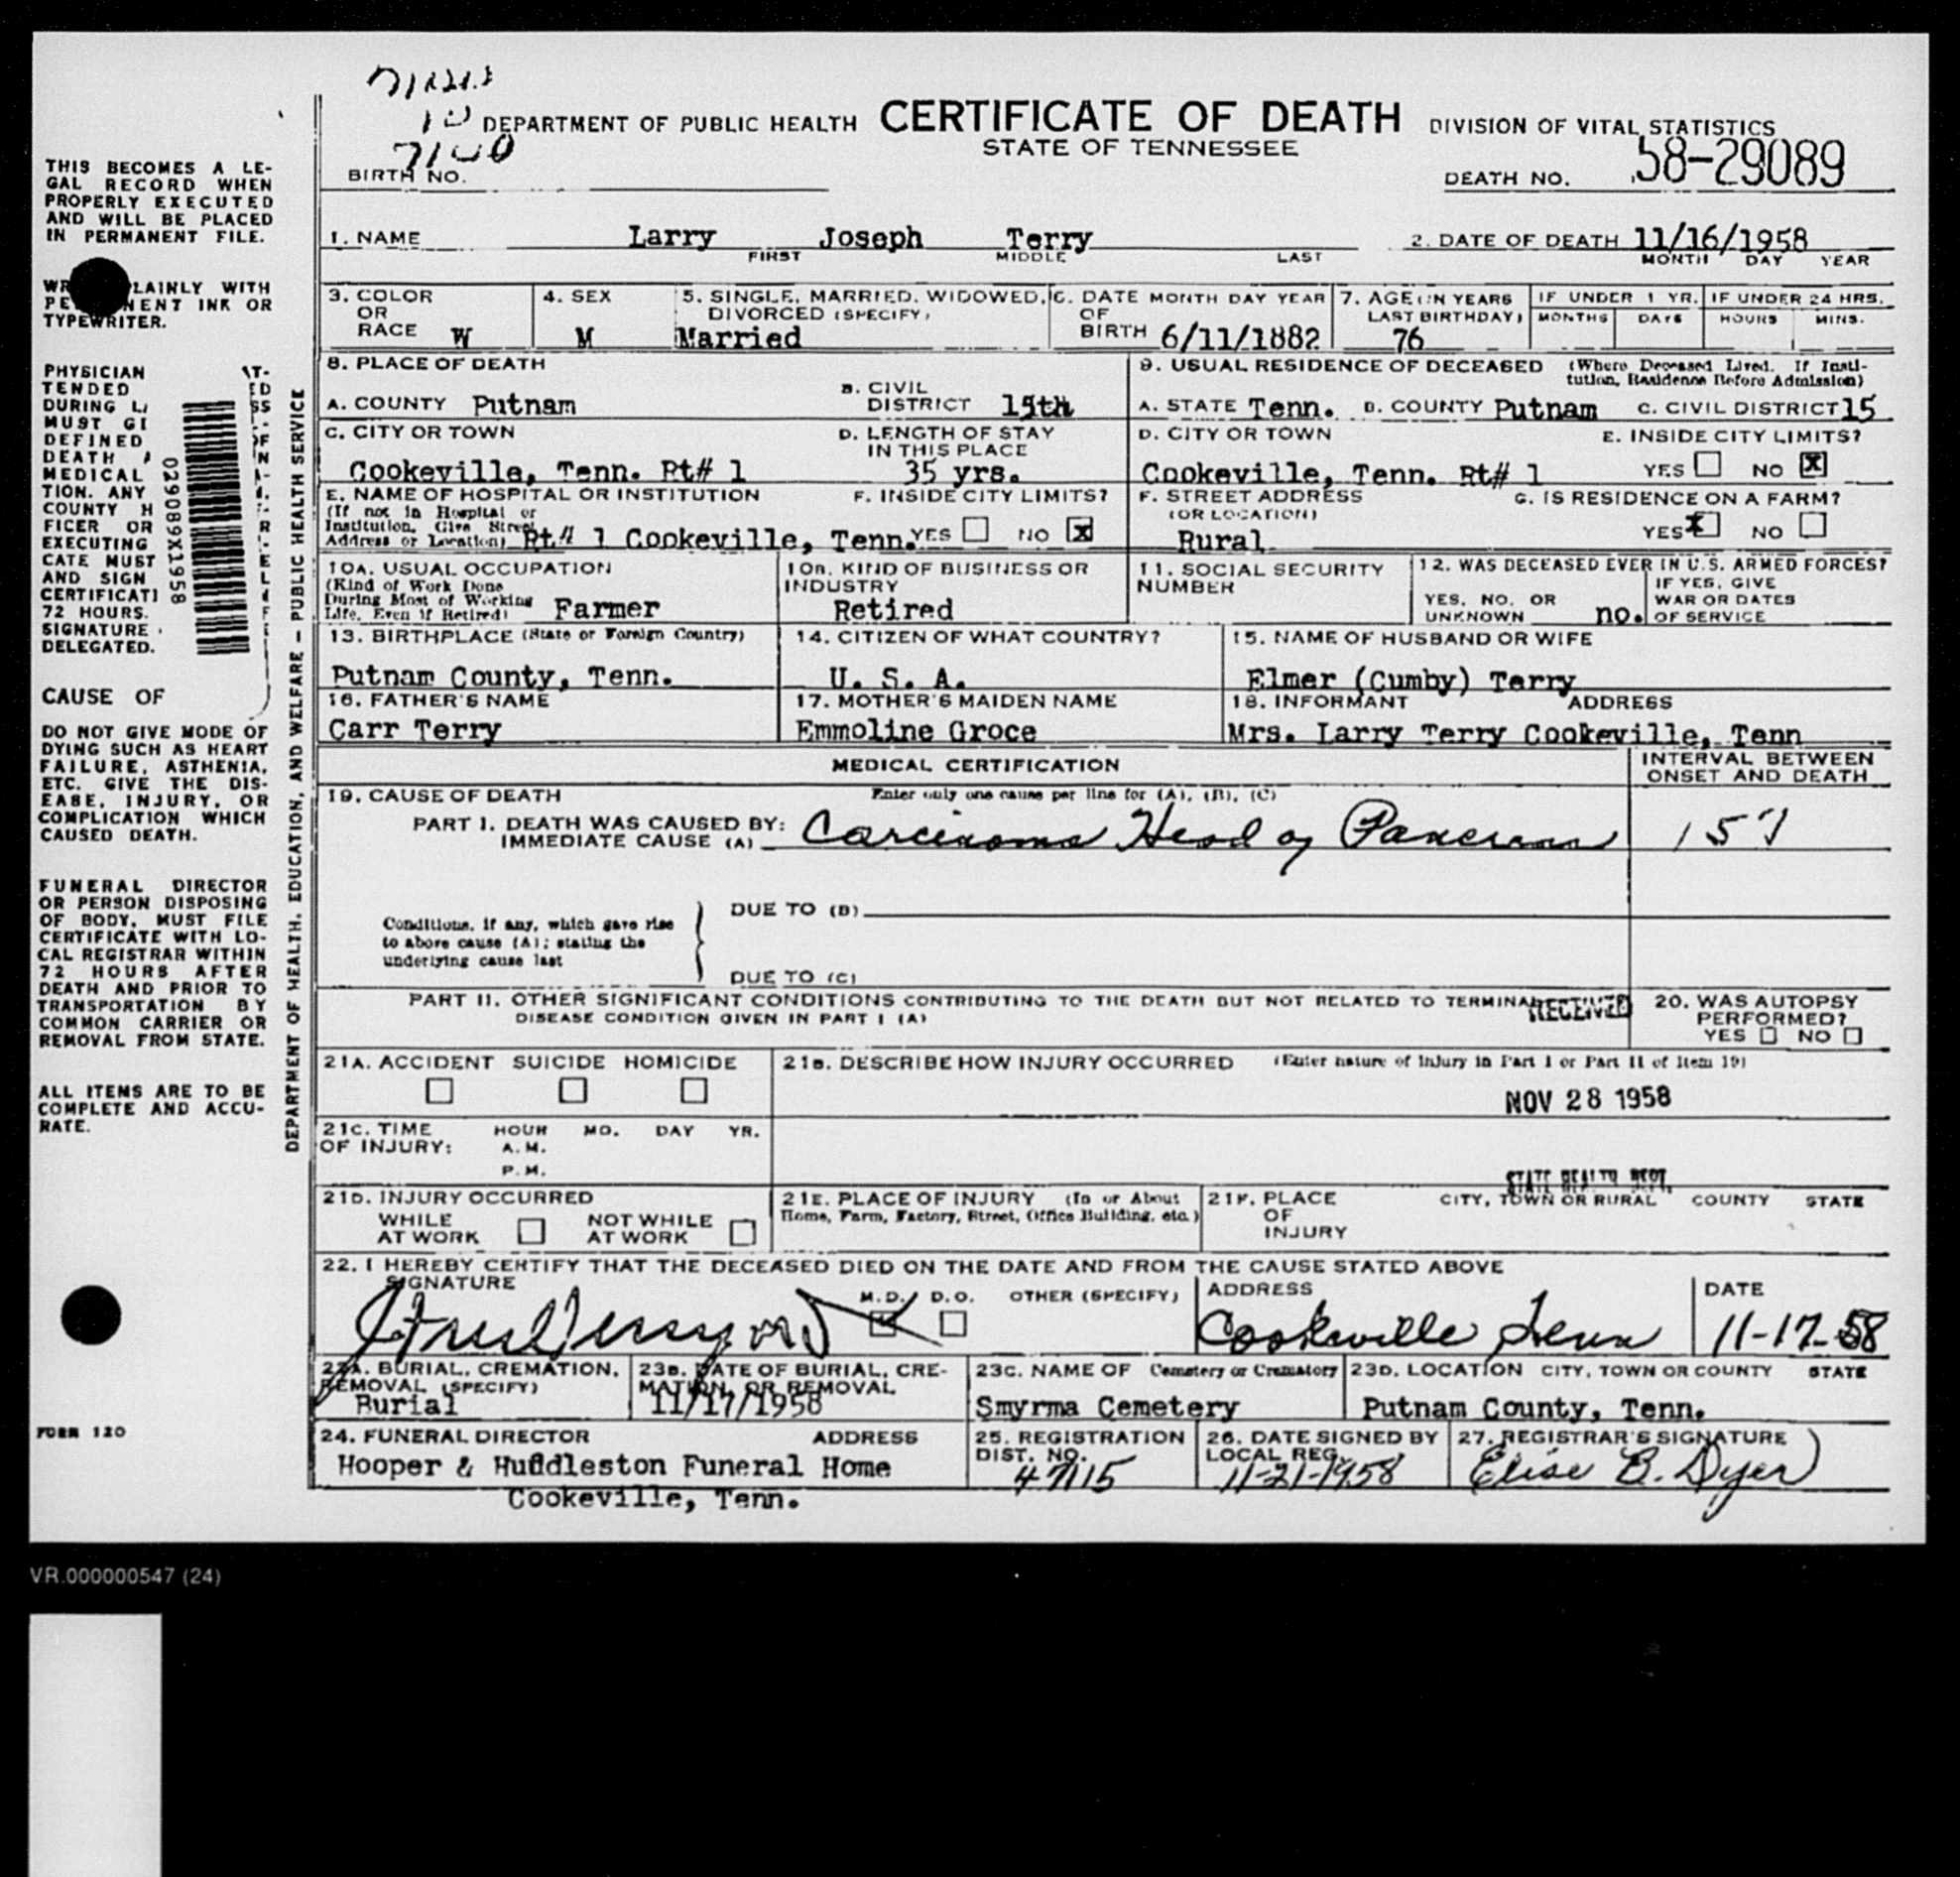 DEPARTMENT OF PUBLIC HEALTH CERTIFICATE OF DEATH DIVISION OF VITAL STATISTICS
STATE OF TENNESSEE
BIRTH NO. DEATH NO. 58-29089
1. NAME Larry Joseph Terry 2. DATE OF DEATH 11/16/1958
FIRST MIDDLE LAST MONTH DAY YEAR
3. COLOR OR RACE W
4. SEX M
5. SINGLE, MARRIED, WIDOWED, DIVORCED (SPECIFY) Married
6. DATE OF BIRTH MONTH DAY YEAR 6/11/1882
7. AGE (IN YEARS LAST BIRTHDAY) 76
IF UNDER 1 YR. MONTHS DAYS
IF UNDER 24 HRS. HOURS MINS.
8. PLACE OF DEATH
A. COUNTY Putnam
B. CIVIL DISTRICT 15th
C. CITY OR TOWN Cookeville, Tenn. Rt# 1
D. LENGTH OF STAY IN THIS PLACE 35 yrs.
E. NAME OF HOSPITAL OR INSTITUTION
(If not in Hospital or
Institution, Give Street
Address or Location) Rt# 1 Cookeville, Tenn.
F. INSIDE CITY LIMITS? YES NO X
9. USUAL RESIDENCE OF DECEASED (Where Deceased Lived. If Insti-
tution, Residence Before Admission)
A. STATE Tenn. B. COUNTY Putnam C. CIVIL DISTRICT 15
D. CITY OR TOWN Cookeville, Tenn. Rt# 1
E. INSIDE CITY LIMITS? YES NO X
F. STREET ADDRESS (OR LOCATION) Rural
G. IS RESIDENCE ON A FARM? YES X NO
10A. USUAL OCCUPATION
(Kind of Work Done
During Most of Working
Life, Even if Retired) Farmer
10B. KIND OF BUSINESS OR INDUSTRY Retired
11. SOCIAL SECURITY NUMBER
12. WAS DECEASED EVER IN U.S. ARMED FORCES?
YES, NO, OR UNKNOWN no.
IF YES, GIVE WAR OR DATES OF SERVICE
13. BIRTHPLACE (State or Foreign Country) Putnam County, Tenn.
14. CITIZEN OF WHAT COUNTRY? U. S. A.
15. NAME OF HUSBAND OR WIFE Elmer (Cumby) Terry
16. FATHER'S NAME Carr Terry
17. MOTHER'S MAIDEN NAME Emmoline Groce
18. INFORMANT ADDRESS Mrs. Larry Terry Cookeville, Tenn
MEDICAL CERTIFICATION
INTERVAL BETWEEN ONSET AND DEATH
19. CAUSE OF DEATH Enter only one cause per line for (A), (B), (C)
PART I. DEATH WAS CAUSED BY:
IMMEDIATE CAUSE (A) Carcinoma Head of Pancreas
Conditions, if any, which gave rise
to above cause (A); stating the
underlying cause last
DUE TO (B)
DUE TO (C)
PART II. OTHER SIGNIFICANT CONDITIONS CONTRIBUTING TO THE DEATH BUT NOT RELATED TO TERMINAL
DISEASE CONDITION GIVEN IN PART I (A)
RECEIVED
20. WAS AUTOPSY PERFORMED?
YES NO
21A. ACCIDENT SUICIDE HOMICIDE
21B. DESCRIBE HOW INJURY OCCURRED (Enter nature of Injury in Part I or Part II of Item 19)
NOV 28 1958
21C. TIME OF INJURY: HOUR MO. DAY YR.
A.M.
P.M.
STATE HEALTH DEPT.
21D. INJURY OCCURRED
WHILE AT WORK NOT WHILE AT WORK
21E. PLACE OF INJURY (In or About
Home, Farm, Factory, Street, Office Building, etc.)
21F. PLACE OF INJURY CITY, TOWN OR RURAL COUNTY STATE
22. I HEREBY CERTIFY THAT THE DECEASED DIED ON THE DATE AND FROM THE CAUSE STATED ABOVE
SIGNATURE M.D. D.O. OTHER (SPECIFY)
ADDRESS Cookeville Tenn
DATE 11-17-58
23A. BURIAL, CREMATION, REMOVAL (SPECIFY) Burial
23B. DATE OF BURIAL, CREMATION, OR REMOVAL 11/17/1958
23C. NAME OF Cemetery or Crematory Smyrma Cemetery
23D. LOCATION CITY, TOWN OR COUNTY STATE Putnam County, Tenn.
24. FUNERAL DIRECTOR ADDRESS
Hooper & Huddleston Funeral Home
Cookeville, Tenn.
25. REGISTRATION DIST. NO. 47115
26. DATE SIGNED BY LOCAL REG. 11-21-1958
27. REGISTRAR'S SIGNATURE Elise B. Dyer
THIS BECOMES A LE-
GAL RECORD WHEN
PROPERLY EXECUTED
AND WILL BE PLACED
IN PERMANENT FILE.
PLAINLY WITH
INK OR
TYPEWRITER.
PHYSICIAN
TENDED
DURING
MUST
DEFINED
DEATH
MEDICAL
TION. ANY
COUNTY
FICER OR
EXECUTING
CATE MUST
AND SIGN
CERTIFICATI
72 HOURS.
SIGNATURE
DELEGATED.
029089X1958
CAUSE OF
DO NOT GIVE MODE OF
DYING SUCH AS HEART
FAILURE, ASTHENIA,
ETC. GIVE THE DIS-
EASE, INJURY, OR
COMPLICATION WHICH
CAUSED DEATH.
FUNERAL DIRECTOR
OR PERSON DISPOSING
OF BODY, MUST FILE
CERTIFICATE WITH LO-
CAL REGISTRAR WITHIN
72 HOURS AFTER
DEATH AND PRIOR TO
TRANSPORTATION BY
COMMON CARRIER OR
REMOVAL FROM STATE.
ALL ITEMS ARE TO BE
COMPLETE AND ACCU-
RATE.
FORM 120
DEPARTMENT OF HEALTH, EDUCATION, AND WELFARE – PUBLIC HEALTH SERVICE
VR.000000547 (24)